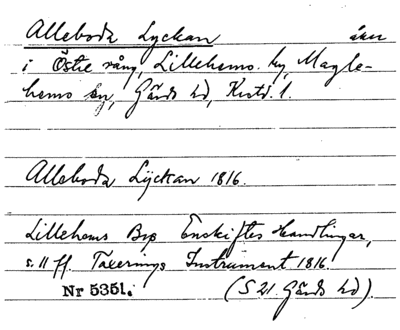 Alleboda Lyckan åker
i Östre vång, Lillehems by, Magle-
hems sn, Gärds hd, Krstd. l.
Alleboda Lÿckan 1816.
Lillehems Bys Enskiftes Handlingar,
s. 11 ff. Taxerings Instrument 1816.
Nr 5351. (S 21. Gärds hd).